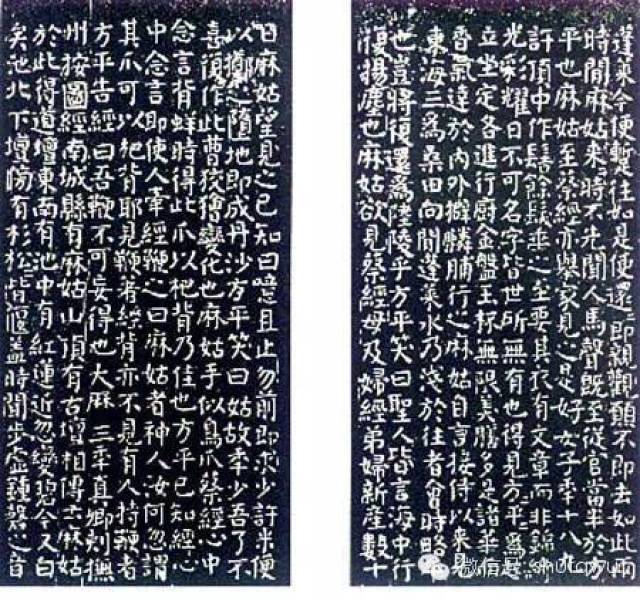 蓬萊今便蹔往如是便還即親觀願不即去如此兩
時間麻姑來時不先聞人馬聲既至從官當半於方
平也麻姑至蔡經亦舉家見之是好女子年十八九
許頂中作髻餘髮垂之至要其衣有文章而非錦綺
光彩耀日不可名字皆世所無有也得見方平為起
立坐定各進行廚金盤玉杯無限美膳多是諸華
香氣達於內外擗麟脯行之麻姑自言接侍以來見
東海三為桑田向間蓬萊水乃淺於往者會時略
也豈將復還為陸陵乎方平笑曰聖人皆言海中行
復揚塵也麻姑欲見蔡經母及婦經弟婦新產數十
日麻姑望見之已知曰噫且止勿前即求少許米便
以擲之墮地即成丹沙方平笑曰姑故年少吾了不
喜復作此曹狡獪變化也麻姑手似鳥爪蔡經心中
念言背蛘時得此爪以杷背乃佳也方平已知經心
中念言即使人牽經鞭之曰麻姑者神人汝何忽謂
其爪可以杷背耶見鞭著經背亦不見有人持鞭者
方平告經曰吾鞭不可妄得也大曆三年真卿刺撫
州按圖經南城縣有麻姑山頂有古壇相傳云麻姑
於此得道壇東南有池中有紅蓮近忽變碧今又白
矣池北下壇傍有杉松皆偃蓋時聞步虛鍾磬之音
微信号: